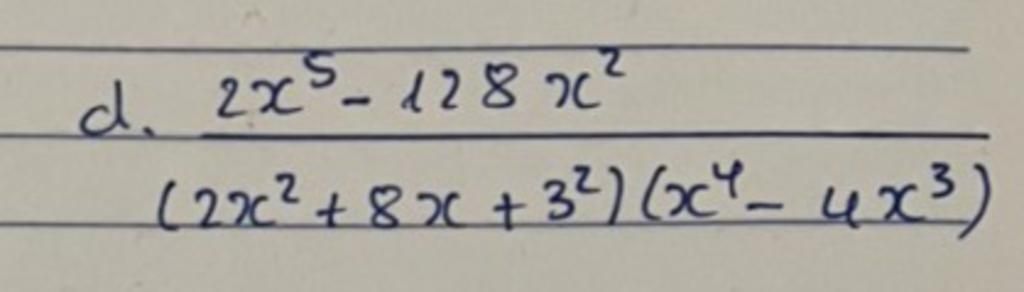 d. 2x⁵ - 128x²
(2x² + 8x + 3²)(x⁴ - 4x³)